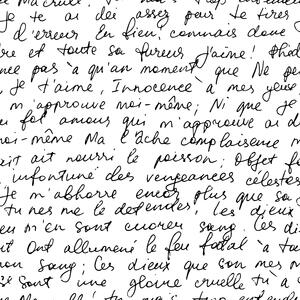 Je te ai dei assez pour te tires
d'erreur Eh bien! connais donc
re et toute sa fureur J'aime! Phèd
nce pas à qu'an moment que Ne pe
Je t'aime, Innocence à mes yeux,
m'approuve moi-même; Ni que Je
fol amour qui m'approuve ai d
oi-même Ma lâche complaisance
ait ait nourri le poisson; Objet f
infortuné des vengeances célestes
Je m'abhorre encor plus que
tu nes me le detendes! les dieux
m'en sont encorer sang. les di
t Ont allumené le feu fatal à tu
on Sang; Ces dieux que son mes m
sont une gloire cruelle tu à